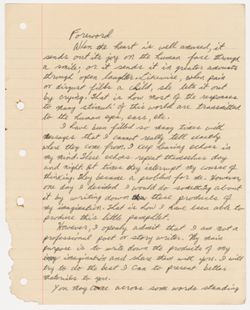 Foreword
When the heart is well amused, it
sends out its joy on the human face through
a smile; or it sends it in greater amounts
through open laughter. Likewise, when pain
or disgust fills a child, she lets it out
by crying. That is how most of the responses
to many stimuli of this world are transmitted
to the human eyes, ears, etc.
I have been filled so many times with
messages that I cannot really tell exactly
when they come from. I keep hearing echoes in
my mind. These echoes repeat themselves day
and night till they interrupt my course of
thinking. They became a problem for me. However,
one day I decided I would do something about
it by writing down these products of
my imagination. That is how I have been able to
produce this little pamphlet.
However, I openly admit that I am not a
professional poet or story writer. My main
purpose is to write down the products of my
imagination and share this with you. I will
try to do the best I can to present better
materials to you.
You may come across some words standing